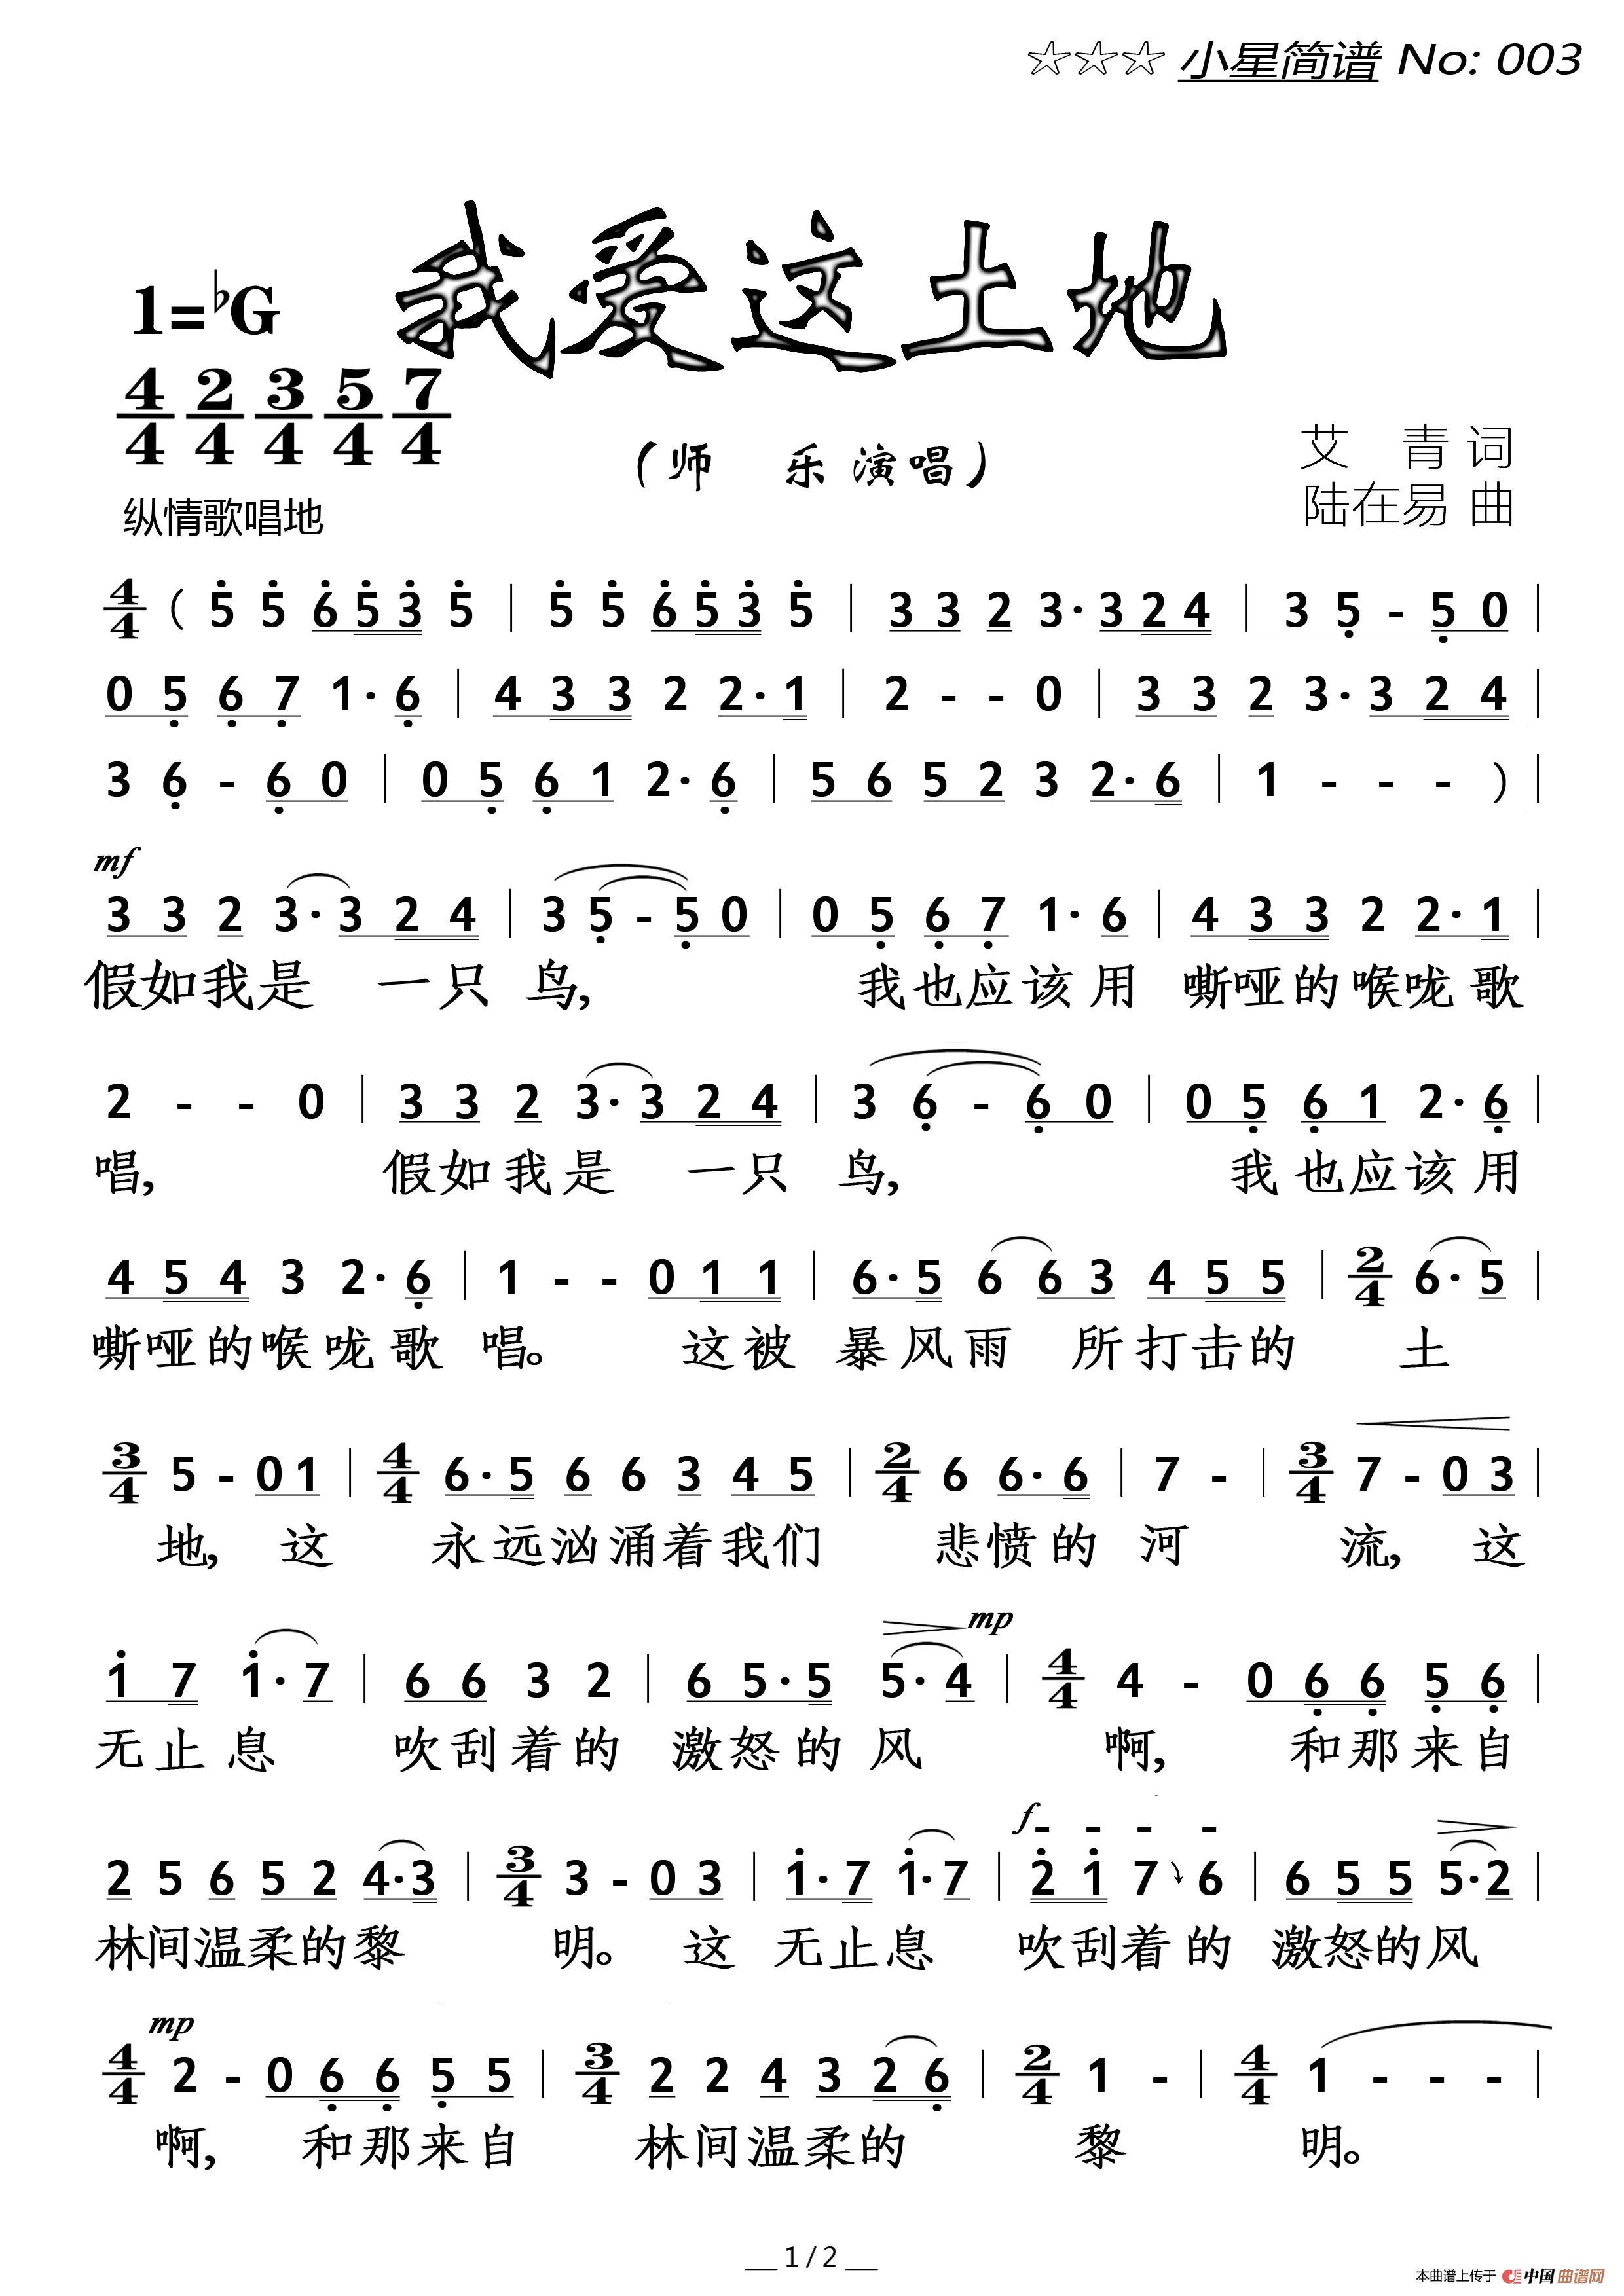 ☆☆☆ 小星简谱 No: 003
我爱这土地
1=♭G
4/4 2/4 3/4 5/4 7/4
（师 乐演唱）
艾 青 词
陆在易 曲
纵情歌唱地
4/4 ( 5 5 6 5 3 5 | 5 5 6 5 3 5 | 3 3 2 3· 3 2 4 | 3 5 - 5 0 |
0 5 6 7 1· 6 | 4 3 3 2 2· 1 | 2 - - 0 | 3 3 2 3· 3 2 4 |
3 6 - 6 0 | 0 5 6 1 2· 6 | 5 6 5 2 3 2· 6 | 1 - - - ) |
mf
3 3 2 3· 3 2 4 | 3 5 - 5 0 | 0 5 6 7 1· 6 | 4 3 3 2 2· 1 |
假如我是 一只 鸟, 我也应该用 嘶哑的喉咙歌
2 - - 0 | 3 3 2 3· 3 2 4 | 3 6 - 6 0 | 0 5 6 1 2· 6 |
唱, 假如我是 一只 鸟, 我也应该用
4 5 4 3 2· 6 | 1 - - 0 1 1 | 6· 5 6 6 3 4 5 5 | 2/4 6· 5 |
嘶哑的喉咙歌 唱。 这被 暴风雨 所打击的 土
3/4 5 - 0 1 | 4/4 6· 5 6 6 3 4 5 | 2/4 6 6· 6 | 7 - | 3/4 7 - 0 3 |
地, 这 永远汹涌着我们 悲愤的 河 流, 这
mp
1 7 1· 7 | 6 6 3 2 | 6 5· 5 5· 4 | 4/4 4 - 0 6 6 5 6 |
无止息 吹刮着的 激怒的 风 啊, 和那来自
f - - - -
2 5 6 5 2 4· 3 | 3/4 3 - 0 3 | 1· 7 1· 7 | 2 1 7 6 | 6 5 5 5· 2 |
林间温柔的黎 明。 这 无止息 吹刮着的 激怒的风
mp
4/4 2 - 0 6 6 5 5 | 3/4 2 2 4 3 2 6 | 2/4 1 - | 4/4 1 - - - |
啊, 和那来自 林间温柔的 黎 明。
__ 1 / 2 __
本曲谱上传于 中国曲谱网